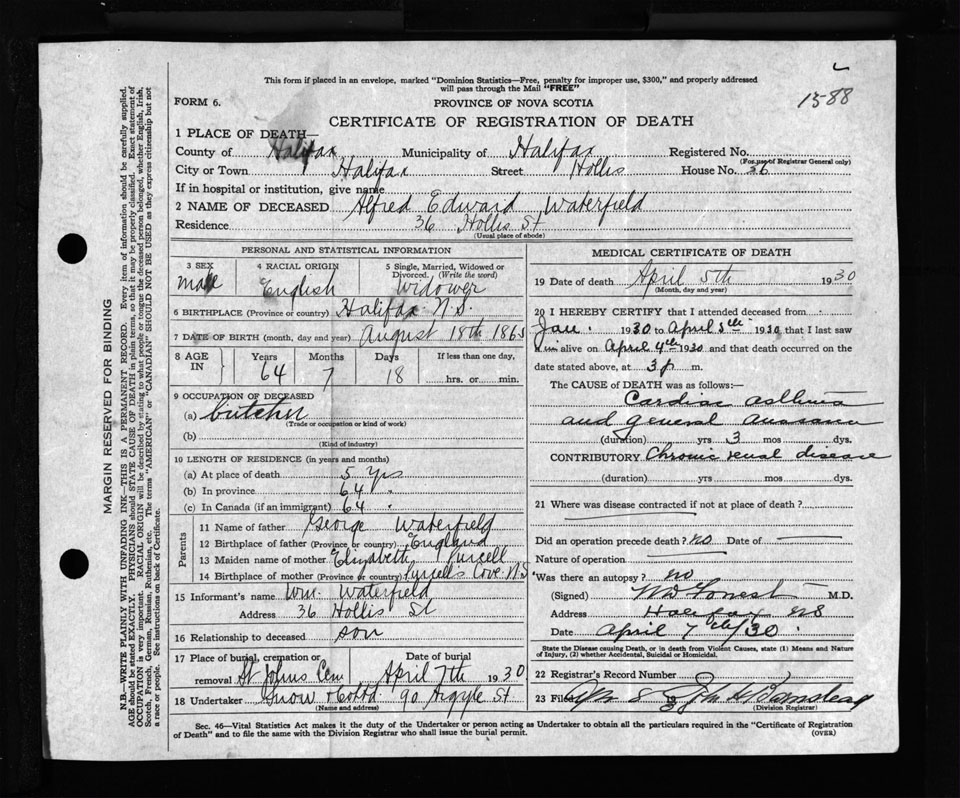 This form if placed in an envelope, marked "Dominion Statistics—Free, penalty for improper use, $300," and properly addressed
will pass through the Mail "FREE"
1588
FORM 6.
PROVINCE OF NOVA SCOTIA
CERTIFICATE OF REGISTRATION OF DEATH
1 PLACE OF DEATH—
County of Halifax Municipality of Halifax Registered No.
(For use of Registrar General only)
City or Town Halifax Street Hollis House No. 36
If in hospital or institution, give name
2 NAME OF DECEASED Alfred Edward Waterfield
Residence 36 Hollis St
(Usual place of abode)
PERSONAL AND STATISTICAL INFORMATION
3 SEX
male
4 RACIAL ORIGIN
English
5 Single, Married, Widowed or
Divorced. (Write the word)
Widower
6 BIRTHPLACE (Province or country) Halifax N.S.
7 DATE OF BIRTH (month, day and year) August 18th 1865
8 AGE IN
Years
64
Months
7
Days
18
If less than one day,
hrs. or min.
9 OCCUPATION OF DECEASED
(a) butcher
(Trade or occupation or kind of work)
(b)
(Kind of industry)
10 LENGTH OF RESIDENCE (in years and months)
(a) At place of death 5 yrs
(b) In province 64 "
(c) In Canada (if an immigrant) 64 "
Parents
11 Name of father George Waterfield
12 Birthplace of father (Province or country) England
13 Maiden name of mother Elizabeth Purcell
14 Birthplace of mother (Province or country) Purcell's Cove N.S
15 Informant's name Wm. Waterfield
Address 36 Hollis St
16 Relationship to deceased son
17 Place of burial, cremation or
removal St Johns Cem
Date of burial
April 7th 1930
18 Undertaker Snow & Co Ltd. 90 Argyle St
(Name and address)
MEDICAL CERTIFICATE OF DEATH
19 Date of death April 5th 1930
(Month, day and year)
20 I HEREBY CERTIFY that I attended deceased from
Jan. 1930 to April 5th 1930 that I last saw
him alive on April 4th 1930 and that death occurred on the
date stated above, at 3 p m.
The CAUSE OF DEATH was as follows:—
Cardiac asthma
and general
(duration) yrs 3 mos dys.
CONTRIBUTORY Chronic renal disease
(duration) yrs. mos. dys.
21 Where was disease contracted if not at place of death?
Did an operation precede death? no Date of
Nature of operation
Was there an autopsy? no
(Signed) WD Forrest M.D.
Address Halifax NS
Date April 7th/30.
State the Disease causing Death, or in death from Violent Causes, state (1) Means and
Nature of Injury, (2) whether Accidental, Suicidal or Homicidal.
22 Registrar's Record Number
23 Filed
(Division Registrar)
Sec. 46—Vital Statistics Act makes it the duty of the Undertaker or person acting as Undertaker to obtain all the particulars required in the "Certificate of Registration
of Death" and to file the same with the Division Registrar who shall issue the burial permit.
(OVER)
MARGIN RESERVED FOR BINDING
N.B.—WRITE PLAINLY WITH UNFADING INK—THIS IS A PERMANENT RECORD. Every item of information should be carefully supplied.
AGE should be stated EXACTLY. PHYSICIANS should STATE CAUSE OF DEATH in plain terms, so that it may be properly classified. Exact statement of
OCCUPATION is very important. RACIAL ORIGIN will be described by stating to what people or tongue the deceased person belonged, whether English, Irish,
Scotch, French, German, Russian, Ruthenian, etc. The terms "AMERICAN" or "CANADIAN" SHOULD NOT BE USED as they express citizenship but not
a race or people. See instructions on back of Certificate.